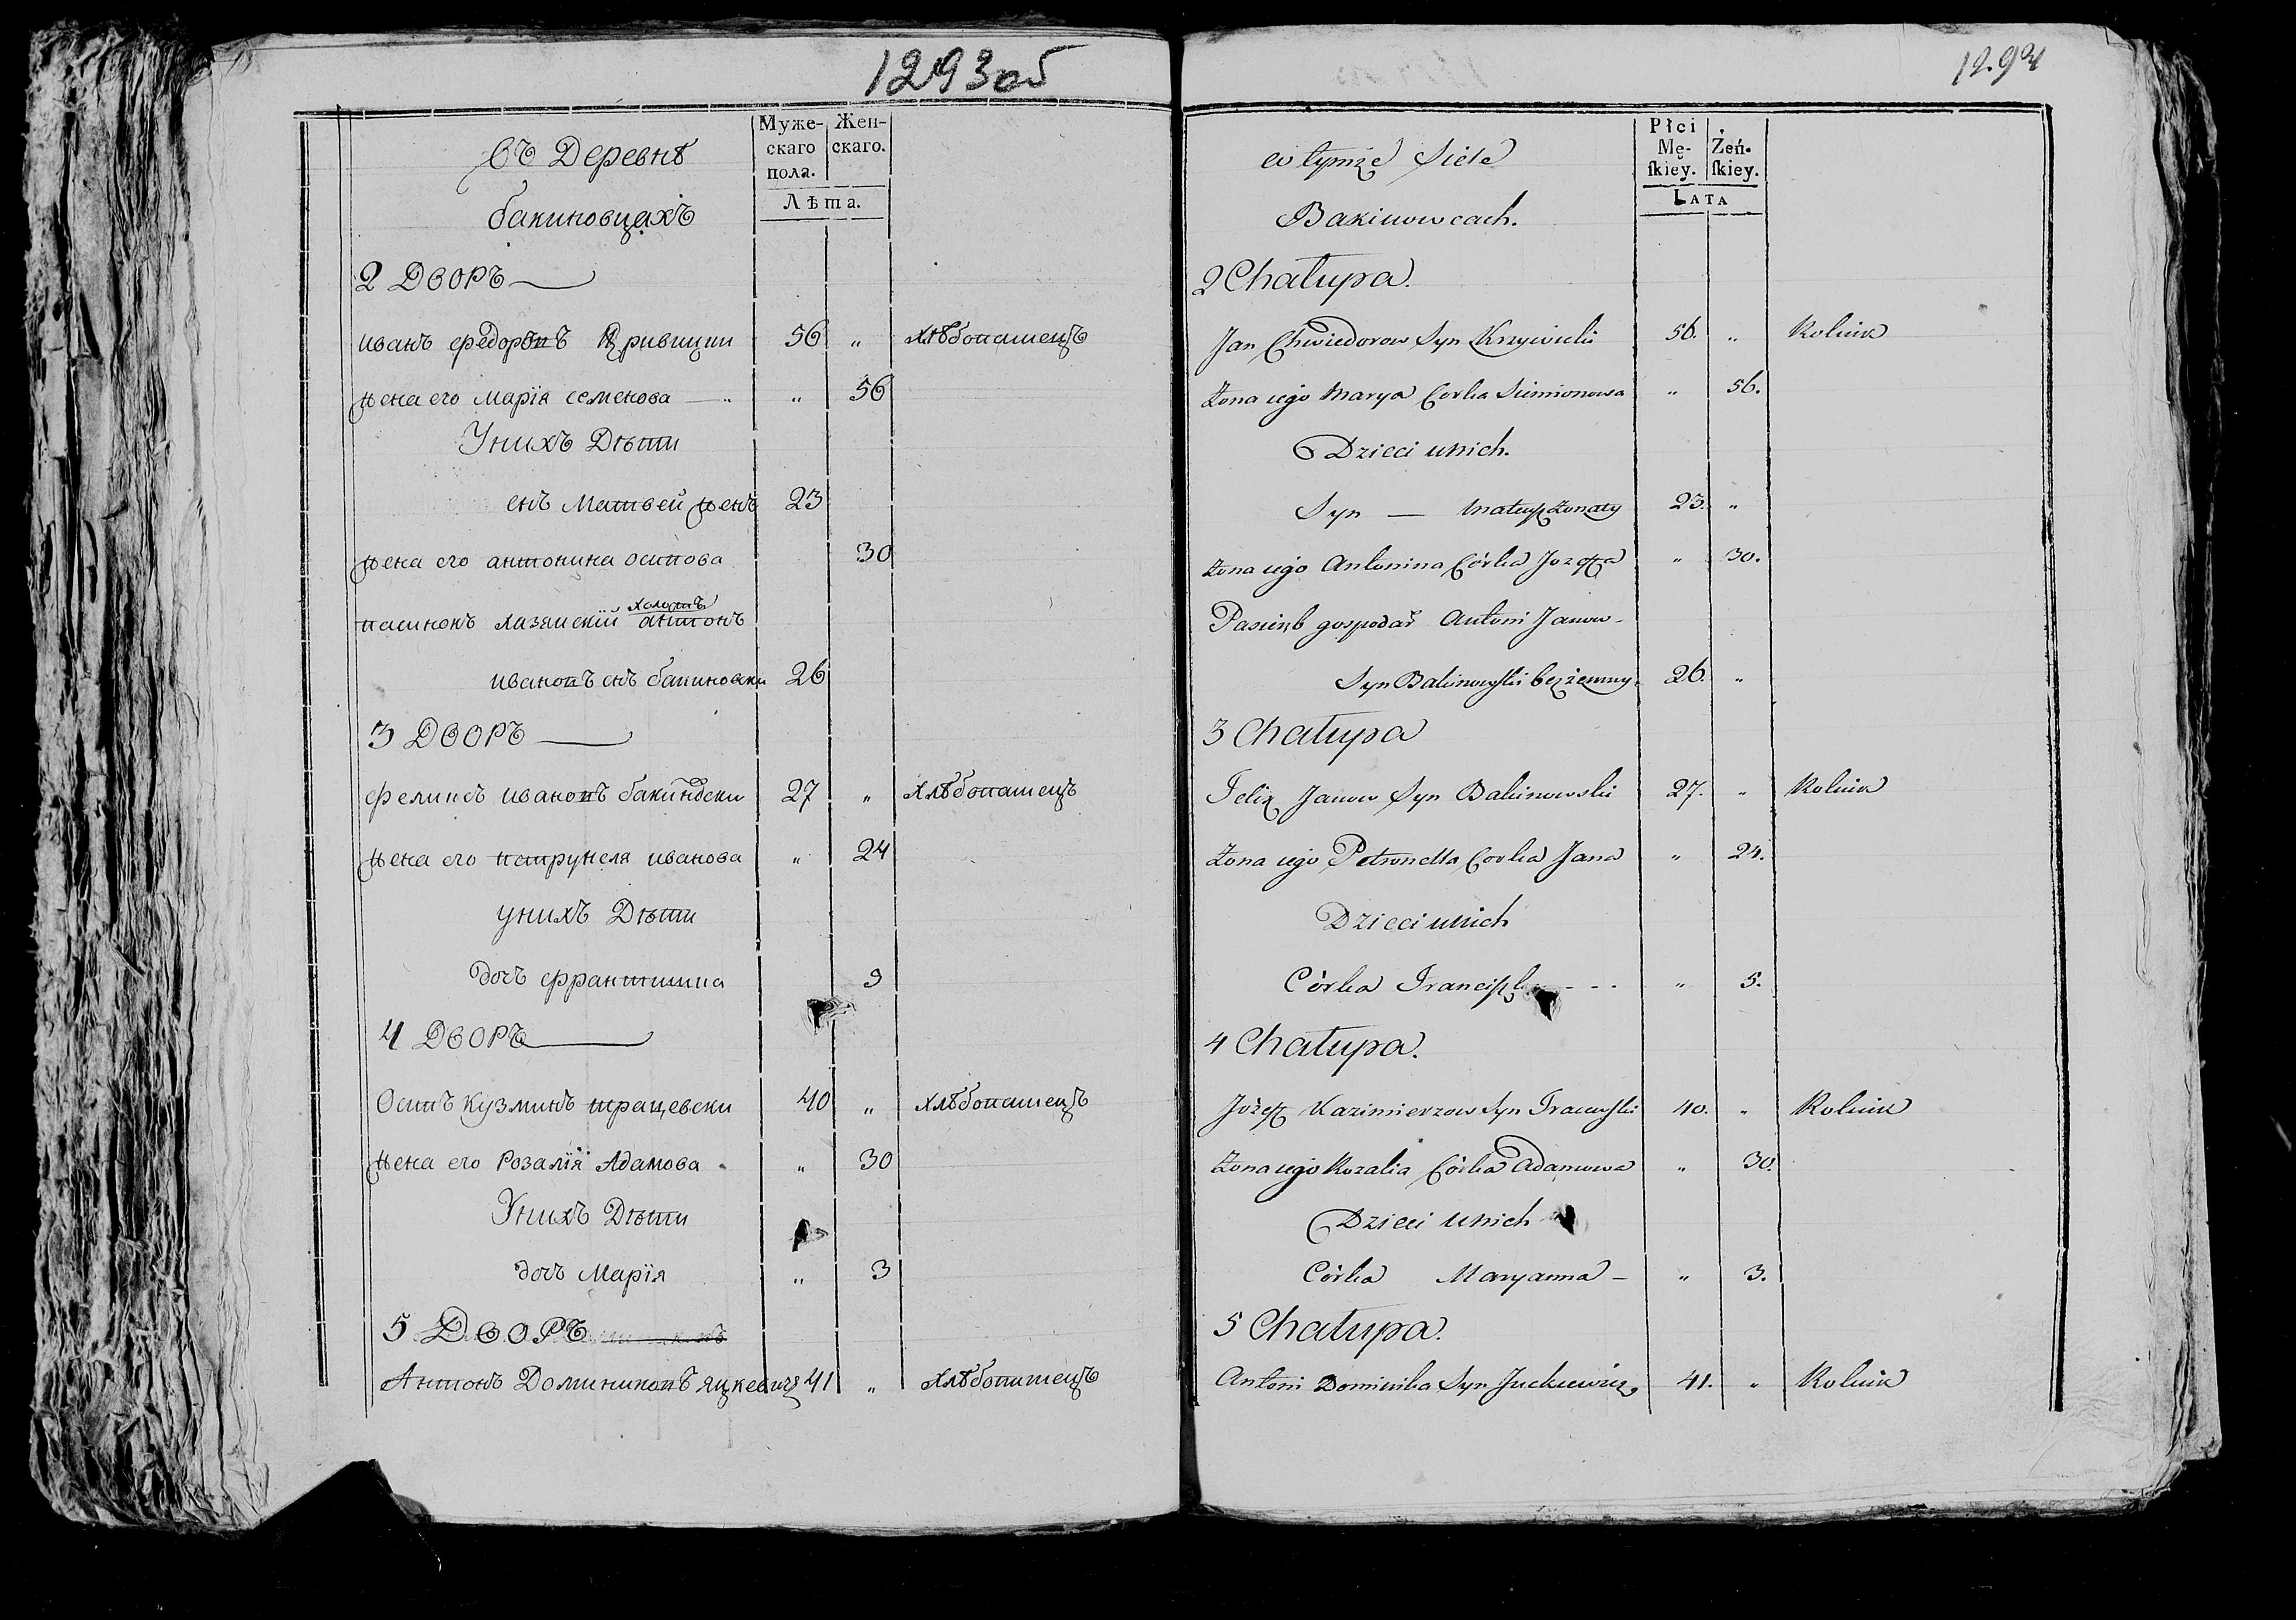 1293об
Муже- Жен-
скаго скаго.
пола.
Лѣта.
въ Деревнѣ
бакиновцахъ
2 Дворъ
иванъ федоровъ Кривицки 56 „ хлѣбопашецъ
жена его марїя семенова „ 56
Унихъ Дѣти
снъ Матвей женъ 23
жена его антонина осипова 30
холостъ
пасинокъ хазяискїй антонъ
ивановъ снъ бакиновски 26
3 Дворъ
феликсъ ивановъ бакиновски 27 „ хлѣбопашецъ
жена его петрунеля иванова „ 24
унихъ Дѣти
дочъ франтишка
4 Дворъ
Осипъ Кузминъ трацевски 40 „ хлѣбопашецъ
жена его Розалїя Адамова „ 30
Унихъ Дѣти
дочъ Марїя „ 3
5 Дворъ
Антонъ Доминиковъ яцкевичъ 41 „ хлѣбопашецъ
1294
Płci
Mę- Żeń-
ſkiey. ſkiey.
LATA
w tymże Siele
Bakinowcach.
2 Chałupa.
Jan Chwiedorow Syn Krzywicki 56. „ Rolnik
Żona iego Marya Corka Simionowa „ 56.
Dzieci unich.
Syn — Matuſz Żonaty 23. „
Żona iego Antonina Córka Jozefa „ 30.
Pasierb gospodař Antoni Janow-
Syn Bakinowſki bezżenny. 26. „
3 Chałupa
Felix Janow Syn Bakinowski 27. „ Rolnik
Żona iego Petronella Corka Jana „ 24.
Dzieci unich
Córka „ 5.
4 Chałupa.
Józef Kazimierzow Syn Tracewſki 40. „ Rolnik
Żona iego Rozalia Córka Adamowa „ 30.
Dzieci unich
Córka Maryanna – „ 3.
5 Chałupa.
Antoni Dominika Syn Jackiewicz, 41. „ Rolnik